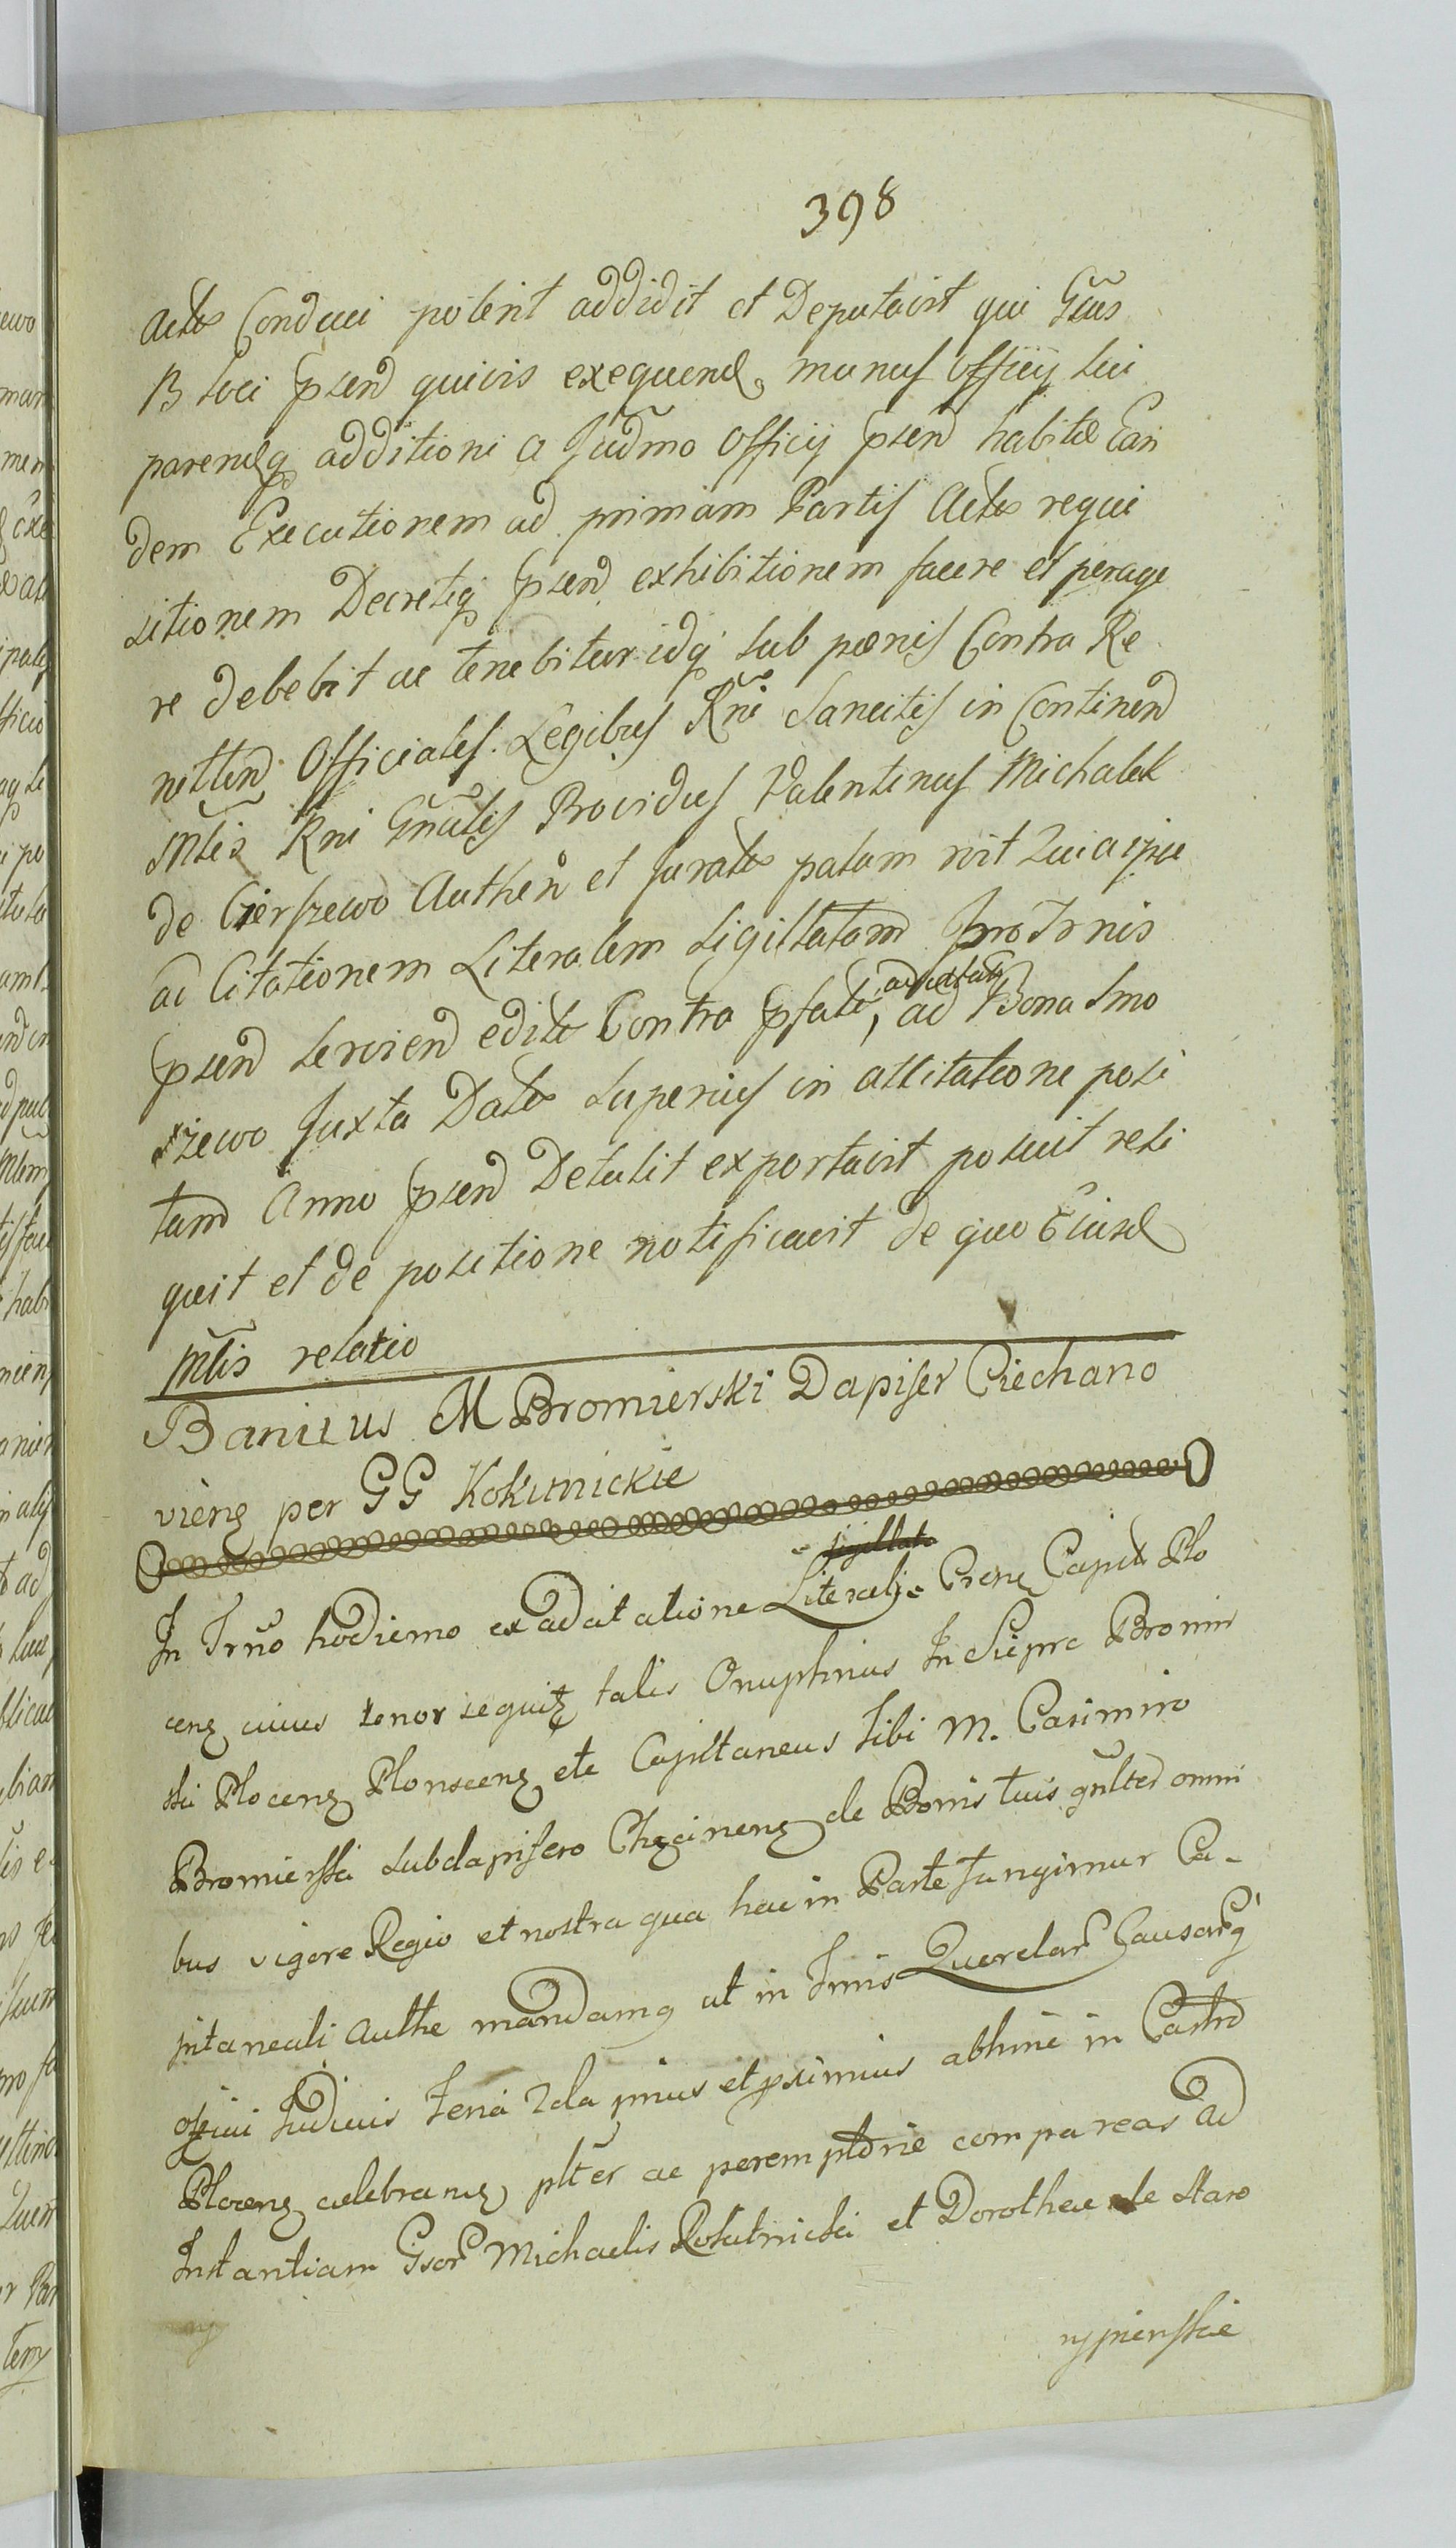 398
actis Conduci poterit addidit et Deputavit qui Gsus
B loci psend quivis exequend munus Officij sui
parendq additioni a Judmo Officij psend habitæ Ean
dem Executionem ad primam Partis Actæ requi
sitionem Decretiq psend exhibitionem facere et perage
re debebit ac tenebitur idq sub pœnis Contra Re
nitten Officiales Legibus Rni Sancitis in Continend
Mlis Rni Gnalis Providus Valentinus Michalek
de Cierszewo Authen et Juratus palam rvit Quia ipse
ac Citationem Literalem Sigillatam pro Trnis
psend serviend editæ Contra psatæ, adcitatu ad Bona Smo
szewo Juxta Datæ superius in attitatione posi
tam Anno psend Detulit exportavit posuit reli
quit et de positione notificavit de quo Eiusd
Mlis relatio
Banitus M Bromierski Dapifer Ciechano
viens per GG Kokutnickie
In Trno hodierno ex adcitatione Literali sigillata Crens Capit Plo
cens cuius tenor sequitz talis Onuphrius In Siepre Bromir
ski Plocens Plonscens etc Capitaneus Tibi M. Casimiro
Bromierski Subdapifero Chęcinens de Bonis tuis gnlter omni
bus vigore Regio et nostra qua hac in Parte fungimur Ca-
pitaneali Authe mandamq ut in Trnis Querelar Causarq
officii Judicii feria 2da prius et pximius abhinc in Castro
Plocens celebrans plter ac peremptorie compareas ad
Instantiam Gsor Michaelis Kokutnicki et Dorothea de Staro
rypienskie